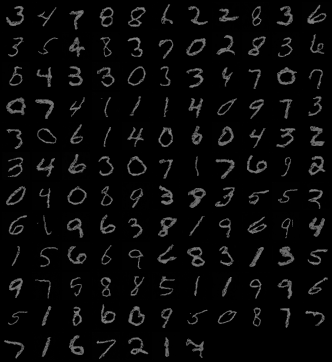 3 4 7 8 8 6 2 2 8 3 6
3 5 4 8 3 7 0 2 8 3 6
5 4 3 3 0 3 3 4 7 0 7
9 7 4 1 1 1 4 0 9 7 3
3 0 6 1 4 0 6 0 4 3 2
3 4 6 3 0 7 1 7 6 9 2
0 4 0 8 9 3 8 3 5 5 2
6 1 9 6 3 8 1 9 6 9 4
1 5 6 6 9 6 8 3 1 3 5
9 7 5 8 8 5 1 1 9 9 6
5 1 8 6 0 9 5 0 8 7 7
7 1 6 7 2 1 7